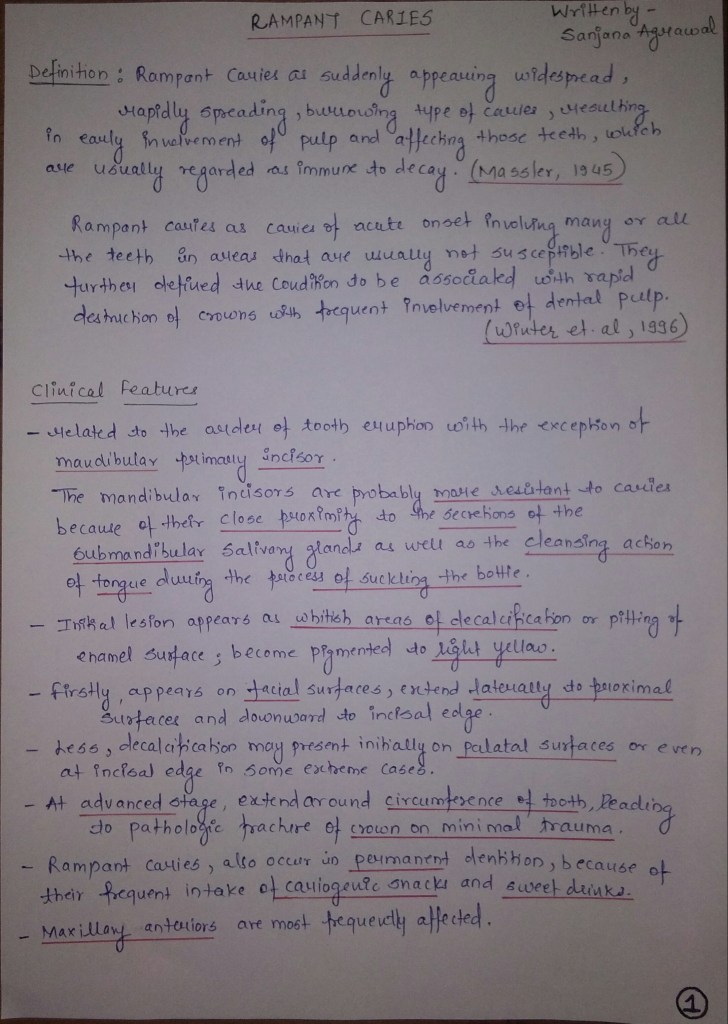 RAMPANT CARIES
Written by -
Sanjana Agrawal
Definition : Rampant Caries as suddenly appearing widespread,
rapidly spreading, burrowing type of caries, resulting
in early involvement of pulp and affecting those teeth, which
are usually regarded as immune to decay. (Massler, 1945)
Rampant caries as caries of acute onset involving many or all
the teeth in areas that are usually not susceptible. They
further defined the condition to be associated with rapid
destruction of crowns with frequent involvement of dental pulp.
(Winter et. al, 1996)
Clinical Features
- related to the order of tooth eruption with the exception of
mandibular primary incisor.
The mandibular incisors are probably more resistant to caries
because of their close proximity to the secretions of the
submandibular salivary glands as well as the cleansing action
of tongue during the process of suckling the bottle.
- Initial lesion appears as whitish areas of decalcification or pitting of
enamel surface; become pigmented to light yellow.
- firstly, appears on facial surfaces, extend laterally to proximal
surfaces and downward to incisal edge.
- Less, decalcification may present initially on palatal surfaces or even
at incisal edge in some extreme cases.
- At advanced stage, extend around circumference of tooth, leading
to pathologic fracture of crown on minimal trauma.
- Rampant caries, also occur in permanent dentition, because of
their frequent intake of cariogenic snacks and sweet drinks.
- Maxillary anteriors are most frequently affected.
1